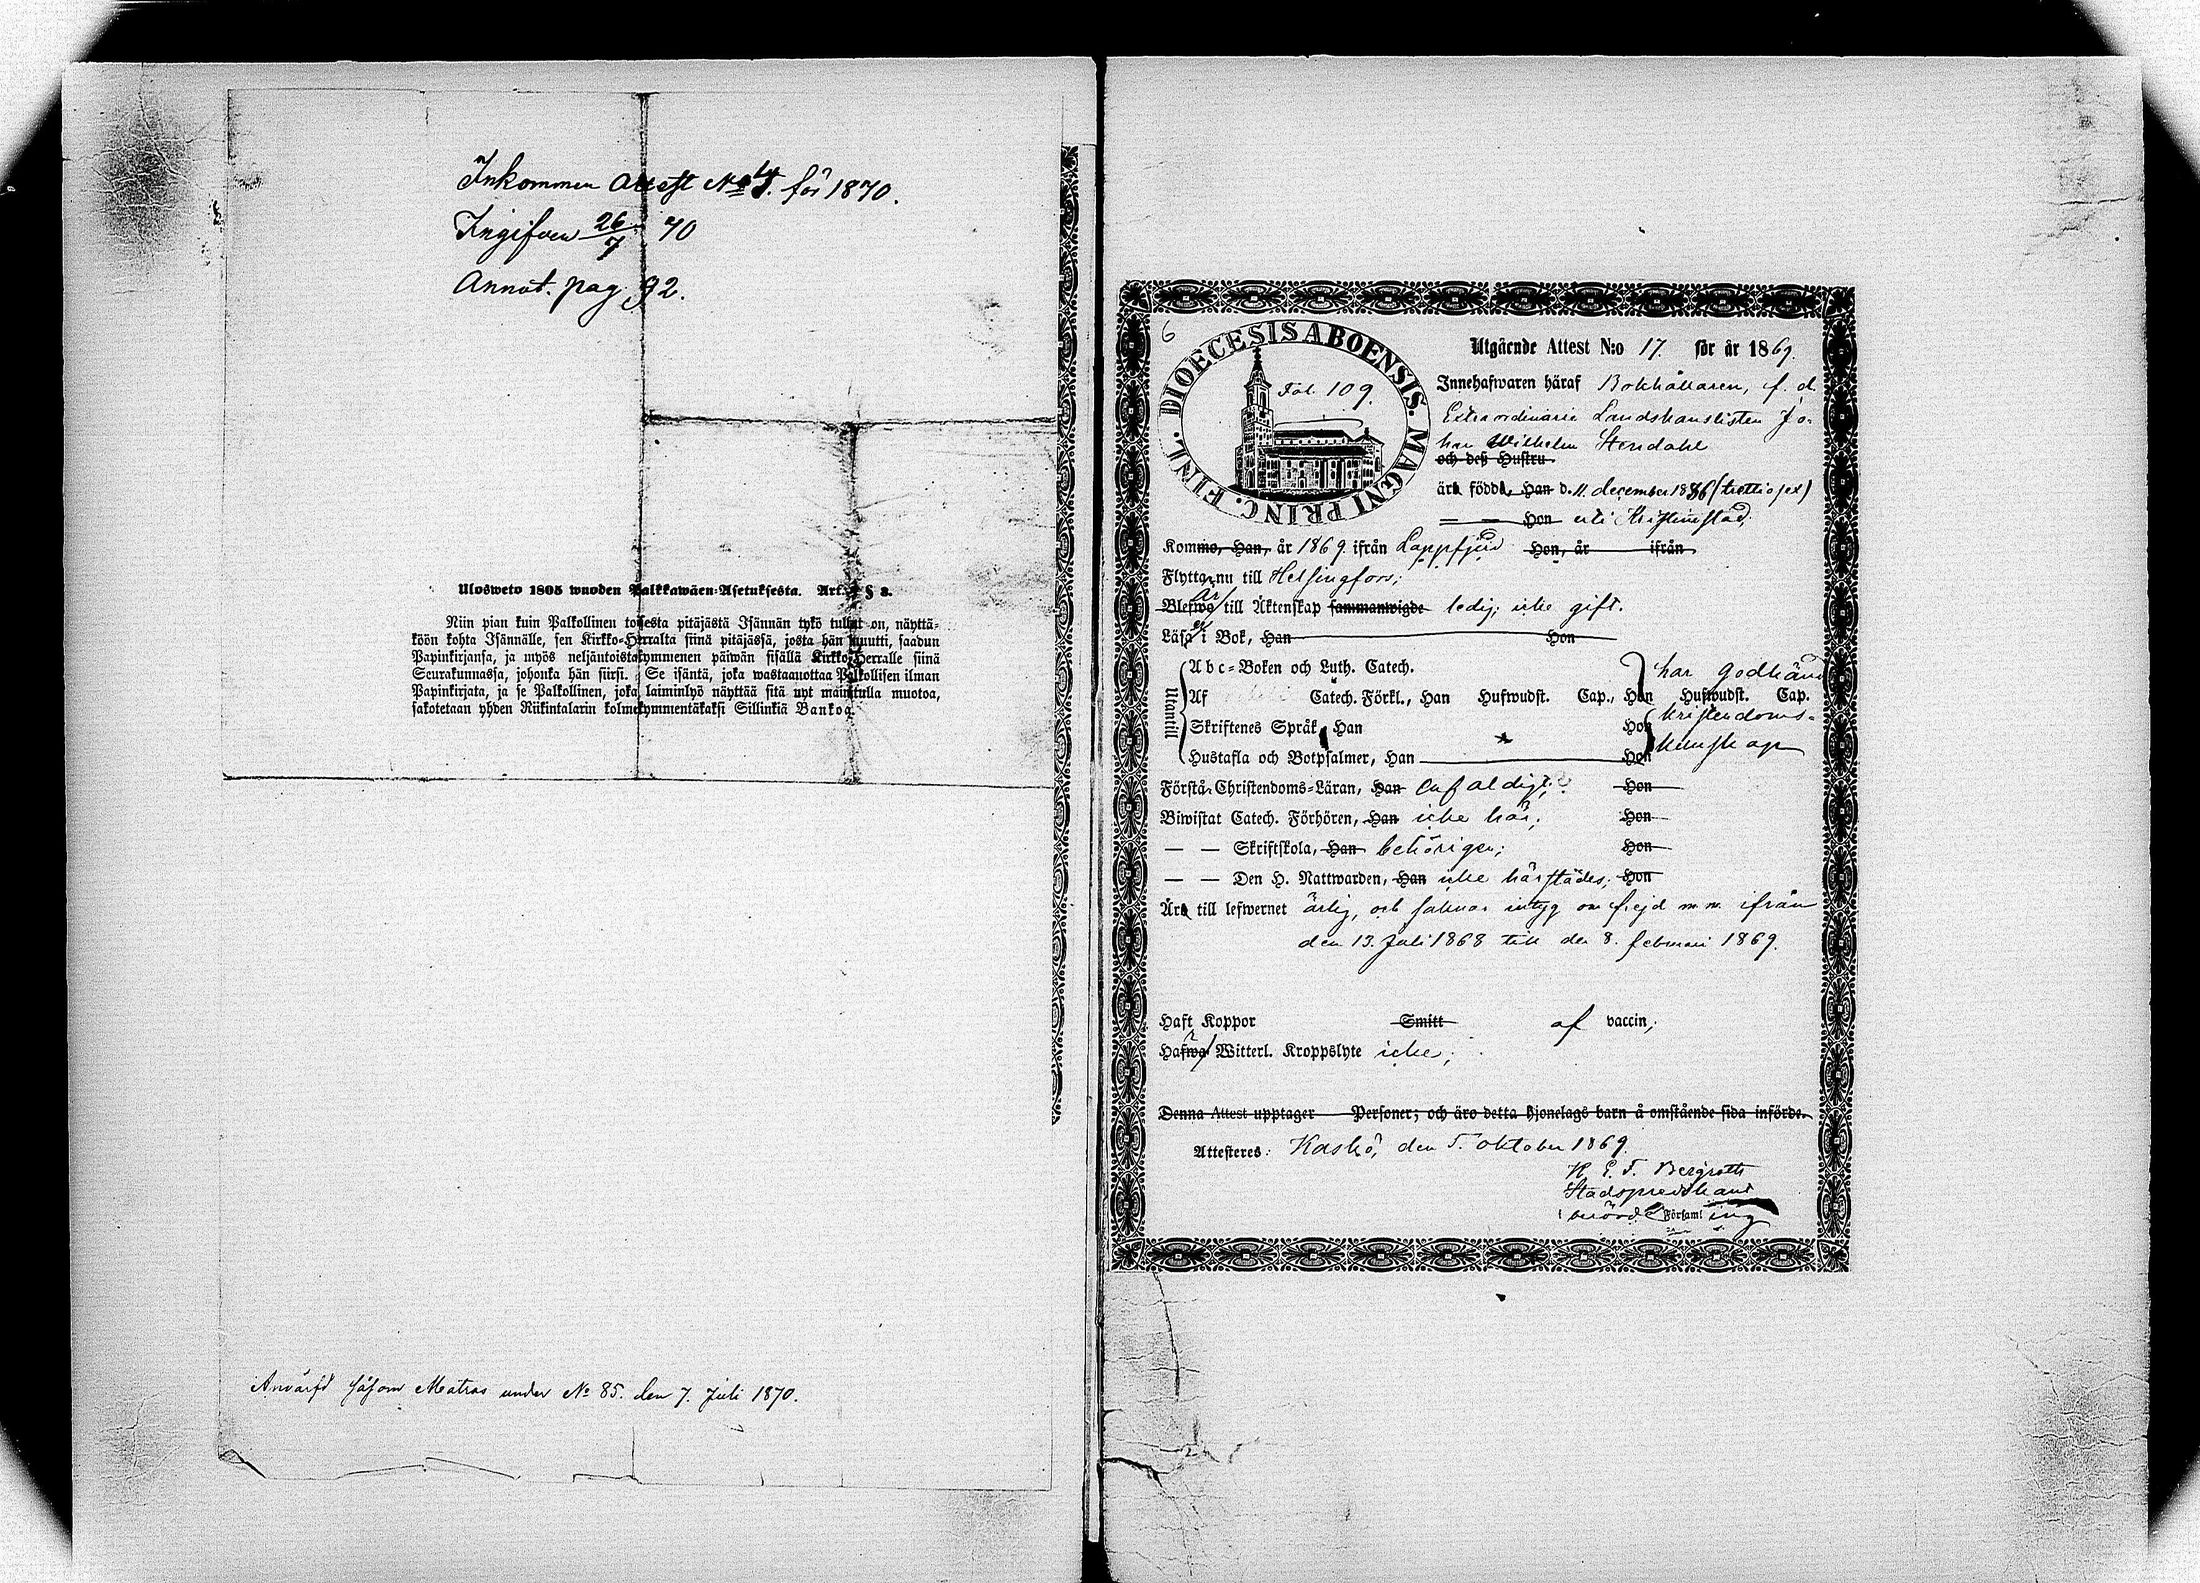 Inkommen Attest No 4. för 1870.
Ingifven 26/7 70
Annot. pag. 92.
Ulosweto 1805 wuoden Palkkawäen-Asetuksesta. Art. § 3.
Niin pian kuin Palkollinen toisesta pitäjästä Isännän tykö tullut on, näyttä-
köön kohta Isännälle, sen Kirkko-Herralta siinä pitäjässä, josta hän muutti, saadun
Papinkirjansa, ja myös neljäntoistakymmenen päiwän sisällä Kirkko-Herralle siinä
Seurakunnassa, johonka hän siirsi. Se isäntä, joka wastaanottaa Palkollisen ilman
Papinkirjata, ja se Palkollinen, joka laiminlyö näyttää sitä nyt mainitulla muotoa,
sakotetaan yhden Riikintalarin kolmekymmentäkaksi Sillinkiä Bankog.
Anvärfd såsom Matros under No 85. den 7. Juli 1870.
6
DIOECESIS ABOENSIS. MAGNI PRINC. FINL.
Fol. 109.
Utgående Attest N:o 17. för år 1869.
Innehafwaren häraf Bokhållaren, f. d.
Extraordinarie Landskanslisten Jo-
han Wilhelm Stendahl
och deß Hustru
äro födde, Han d. 11. december 1836 (trettiosex)
Hon uti Kristinestad;
Kommo, Han, år 1869 ifrån Lappfjerd Hon, år ifrån
Flytta nu till Helsingfors;
Blefwo är till Äktenskap sammanwigde ledig; icke gift.
Läsa i Bok, Han Hon
Utantill
Abc-Boken och Luth. Catech. har godkänd
Af Catech. Förkl., Han Hufwudst. Cap., Hon Hufwudst. Cap.
kristendoms-
Skriftenes Språk, Han Hon
kunskap
Hustafla och Botpsalmer, Han Hon
Förstå Christendoms-Läran, Han enfaldigt; Hon
Biwistat Catech. Förhören, Han icke här; Hon
— — Skriftskola, Han behörigen; Hon
— — Den H. Nattwarden, Han icke härstädes; Hon
Äro till lefwernet ärlig, och saknar intyg om frejd m.m. ifrån
den 13. Juli 1868 till den 8. februari 1869.
Haft Koppor Smitt af vaccin;
Hafwa Witterl. Kroppslyte icke;
Denna Attest upptager Personer; och äro detta Hjonelags barn å omstående sida införde.
Attesteres: Kaskö, den 5. oktober 1869.
K. E. F. Bergroth
Stadspredikant
i berörde Församling